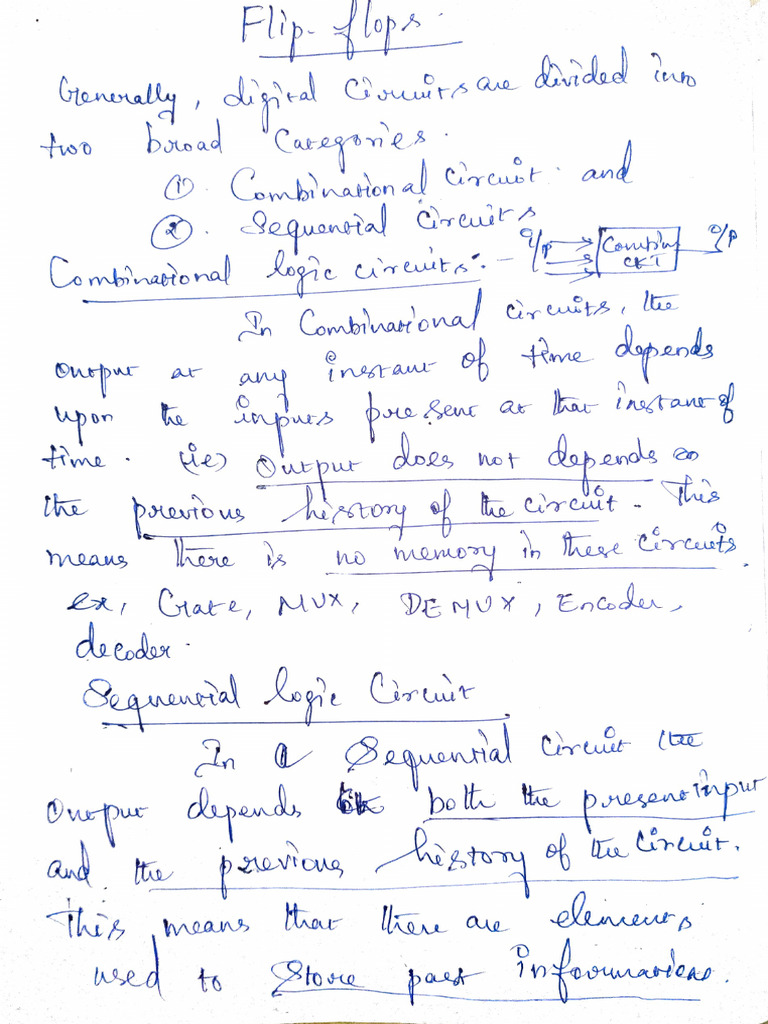 Flip-flops.
Generally, digital Circuits are divided into
two broad Categories.
① Combinational circuit. and
②. Sequential Circuits
Combinational logic circuits:- I/P Combin CKT O/P
In Combinational circuits, the
output at any instant of time depends
upon the inputs present at that instant of
time. (ie) Output does not depends on
the previous history of the circuit. This
means there is no memory in these circuits.
ex, Gate, MUX, DEMUX, Encoder,
decoder.
Sequential logic Circuit
In a Sequential circuit the
output depends both the present input
and the previous history of the circuit.
This means that there are elements
used to store past information.